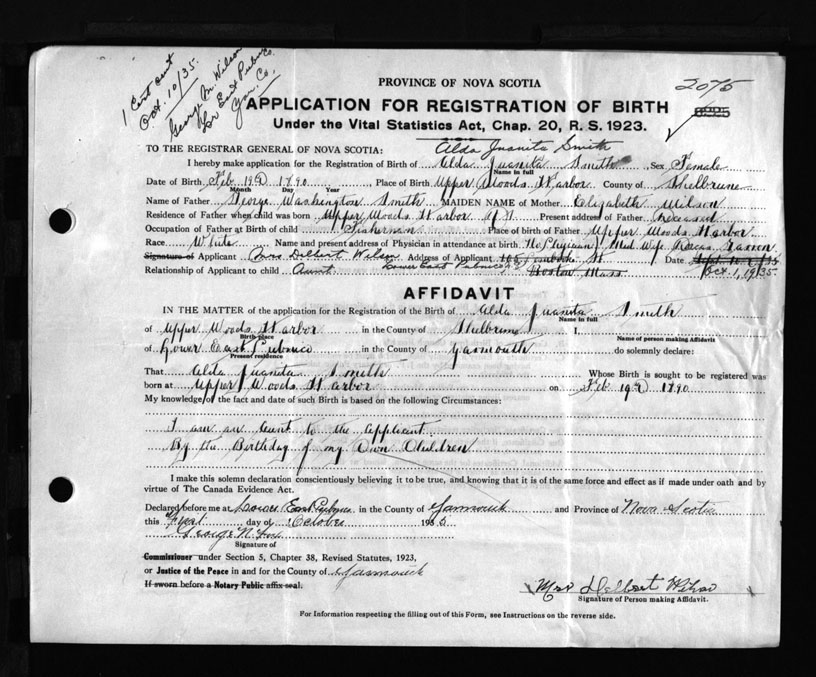 1 Cert out
Oct. 10/35.
George M. Wilson
Lr East Pubnico
Yar. Co.
2075
PROVINCE OF NOVA SCOTIA
APPLICATION FOR REGISTRATION OF BIRTH
Under the Vital Statistics Act, Chap. 20, R. S. 1923.
TO THE REGISTRAR GENERAL OF NOVA SCOTIA: Alda Juanita Smith
I hereby make application for the Registration of Birth of Alda Juanita Smith Sex Female
Name in full
Date of Birth Feb 19th 1890 Place of Birth Upper Woods Harbor County of Shelburne
Month Day Year
Name of Father George Washington Smith MAIDEN NAME of Mother Elizabeth Wilson
Residence of Father when child was born Upper Woods Harbor Present address of Father Deceased
Occupation of Father at Birth of child Fisherman Place of birth of Father Upper Woods Harbor
Race White Name and present address of Physician in attendance at birth No Physician Mid Wife
Signature of Applicant Mrs Delbert Wilson Address of Applicant St Date
Lower East Pubnico
Relationship of Applicant to child Aunt Boston Mass Oct 1, 19/35
AFFIDAVIT
IN THE MATTER of the application for the Registration of the Birth of Alda Juanita Smith
Name in full
of Upper Woods Harbor in the County of Shelburne I,
Birth-place Name of person making Affidavit
of Lower East Pubnico in the County of Yarmouth do solemnly declare:
Present residence
That Alda Juanita Smith Whose Birth is sought to be registered was
born at Upper Woods Harbor on Feb 19th 1890
My knowledge of the fact and date of such Birth is based on the following Circumstances:
I am an Aunt to the Applicant.
By the Birthday of my Own Children
I make this solemn declaration conscientiously believing it to be true, and knowing that it is of the same force and effect as if made under oath and by
virtue of The Canada Evidence Act.
Declared before me at Lower East Pubnico in the County of Yarmouth and Province of Nova Scotia
this First day of October 1935
George N.
Signature of
Commissioner under Section 5, Chapter 38, Revised Statutes, 1923,
or Justice of the Peace in and for the County of Yarmouth
If sworn before a Notary Public affix seal.
Mrs Delbert Wilson
Signature of Person making Affidavit.
For Information respecting the filling out of this Form, see Instructions on the reverse side.